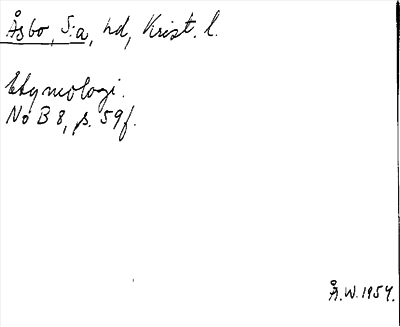 Åsbo, S:a, hd, Krist. l.
Etymologi.
No B 8, s. 59f.
Å.W. 1954.